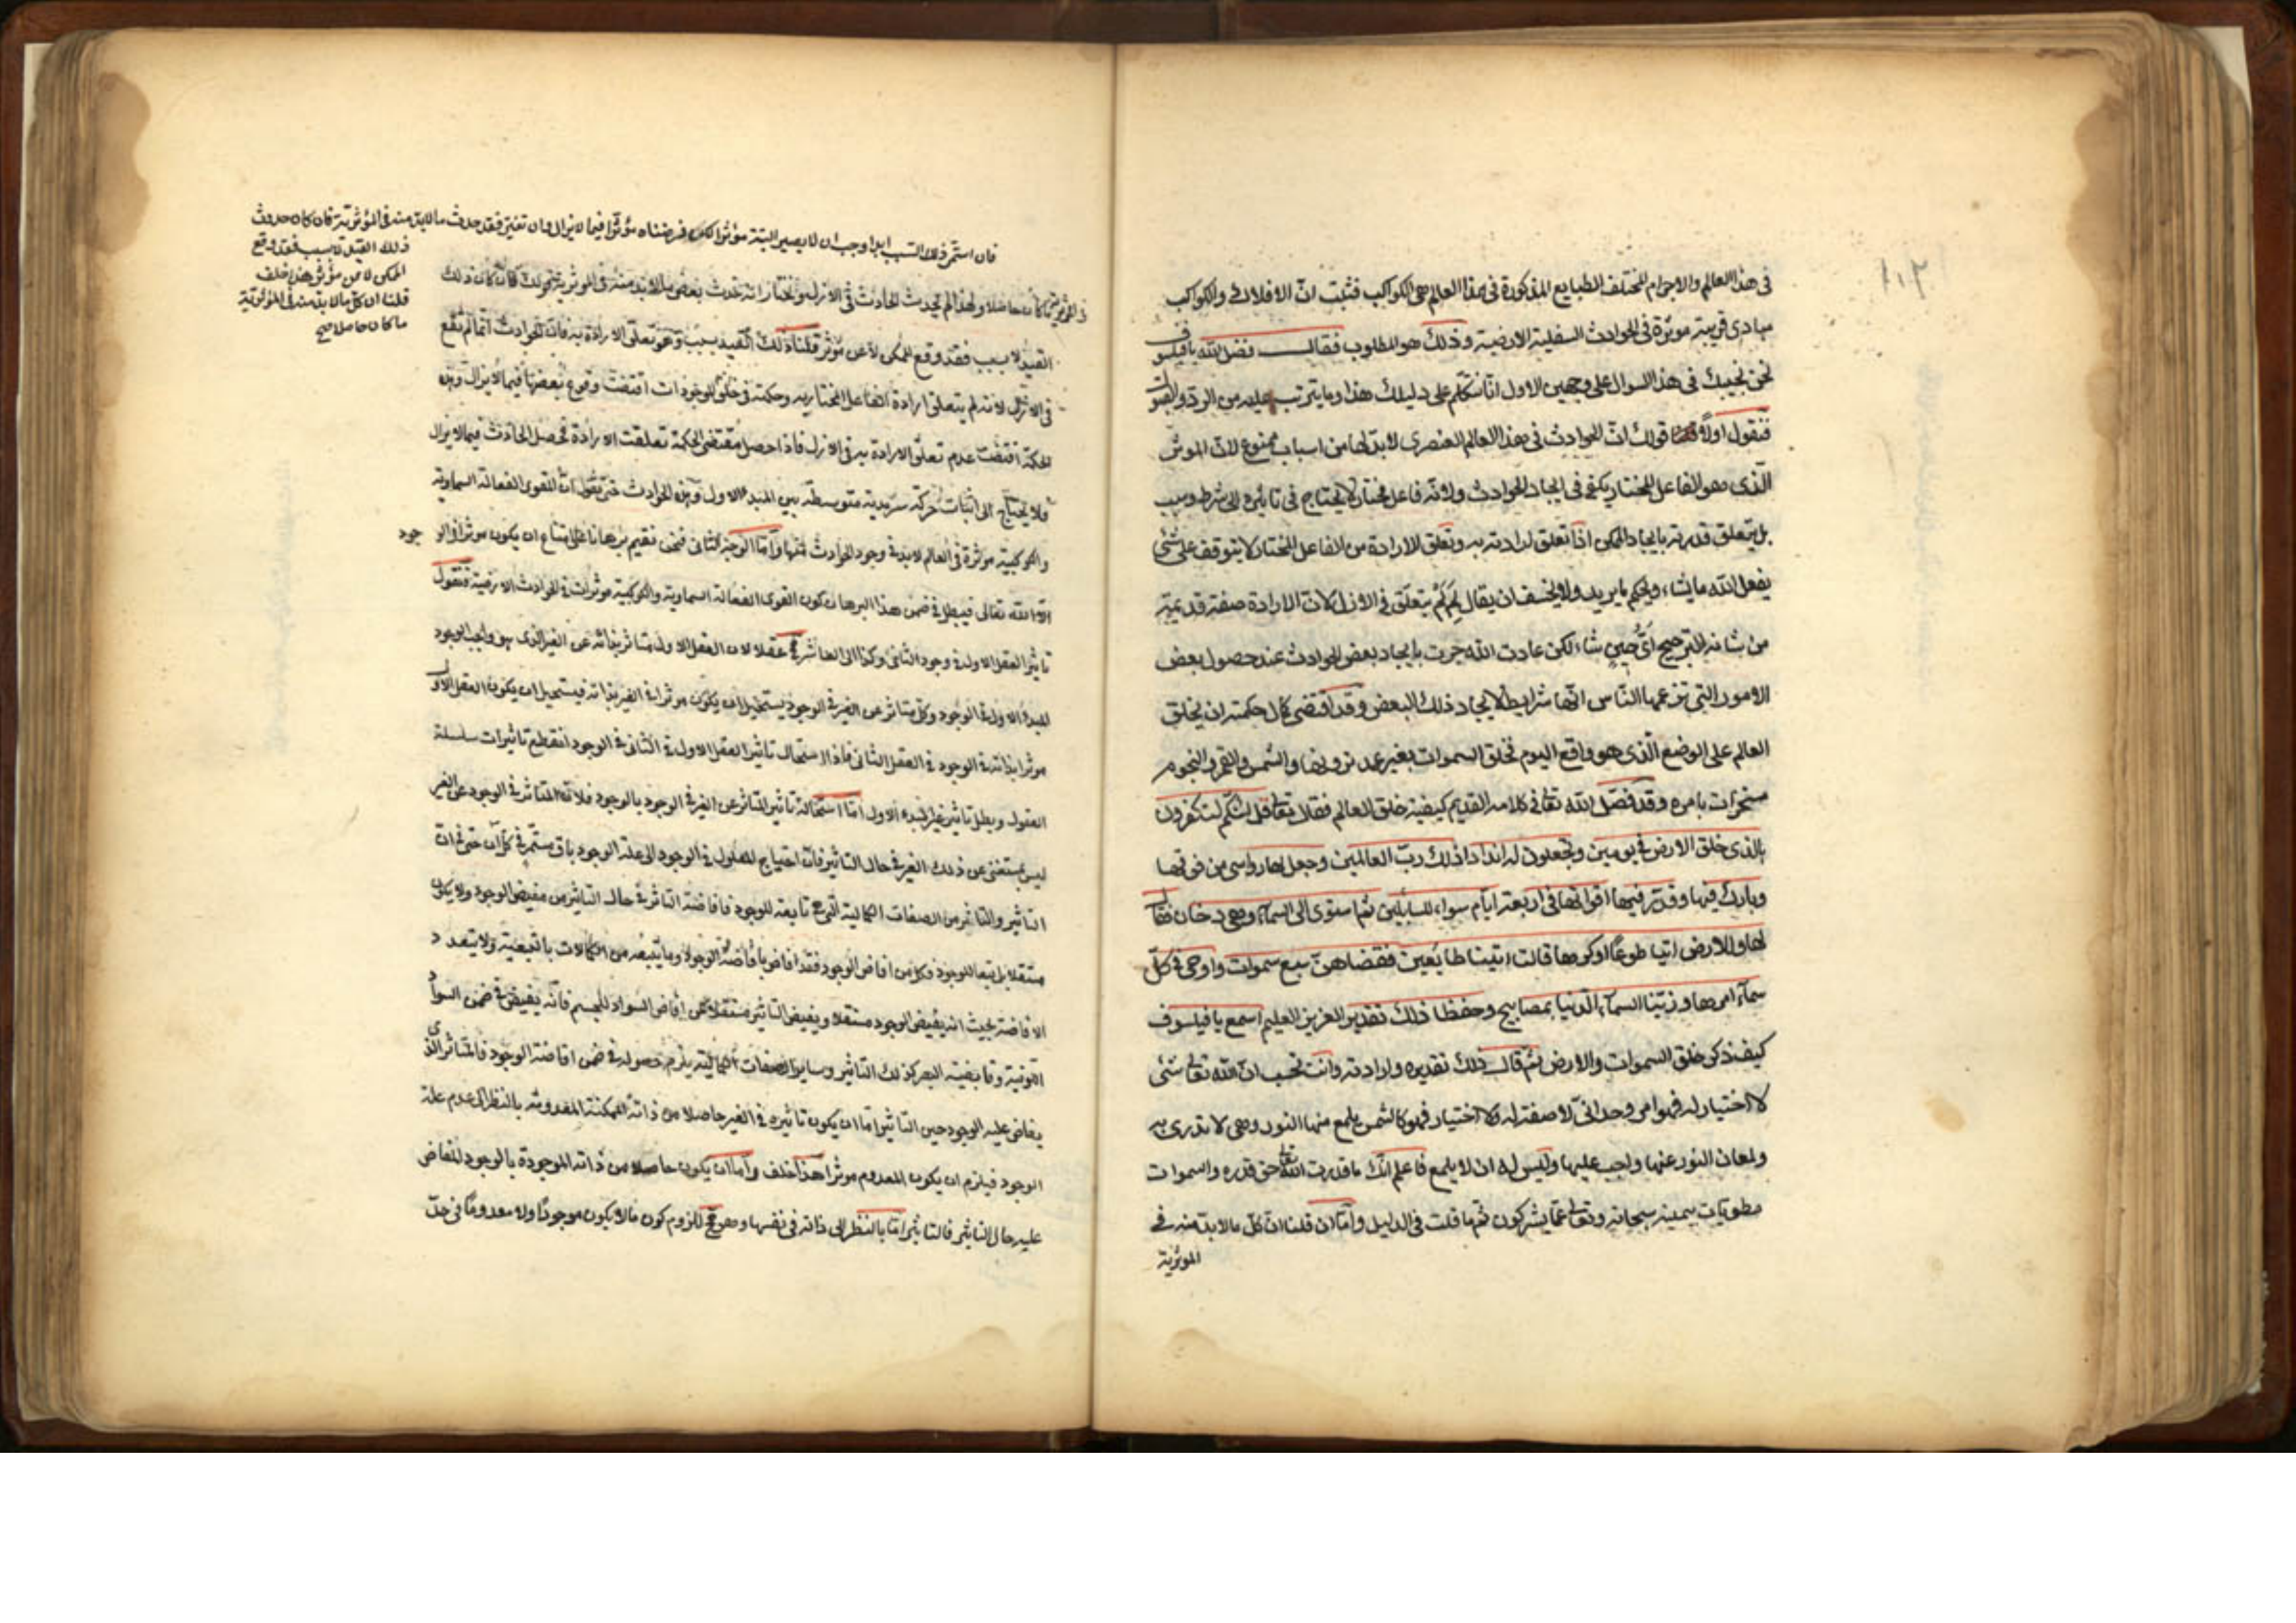 ١٠٢
في هذا العالم والاجرام المختلفة الطبايع المذكورة في هذا العالم هي الكواكب فثبت انّ الافلاك والكواكب
مبادى قريبة موثرة في الحوادث السفلية الارضية وذلك هو المطلوب فقال فضل الله يا فيلسوف
نحن نجيبك في هذا السوال على وجهين الاول انا نتكلم على دليلك هذا وما يترتب عليه من الردّ والقبول
فنقول اولاً قولك انّ الحوادث في هذا العالم العنصرى لابدّ لها من اسباب ممنوع لانّ الموثر
الّذى هو الفاعل المختار يكفى في ايجاد الحوادث ولانّه فاعل مختار لا يحتاج في تاثيره الى شرط وسبب
بل يتعلق قدرته بايجاد الممكن اذا تعلق ارادته به وتعلق الارادة من الفاعل المختار لا يتوقف على شئ
يفعل الله ما يشاء ويحكم ما يريد ولا يحسن ان يقال لِمَ لَمْ يتعلق في الازل لانّ الارادة صفة قديمة
من شانه الترجيح اَىَّ حينٍ شاء لكن عادت الله جرت بايجاد بعض الحوادث عند حصول بعض
الامور التي تزعمها النّاس انّها شرايط لايجاد ذلك البعض وقد اقتضى كمال حكمته ان يخلق
العالم على الوضع الّذى هو واقع اليوم فخلق السموات بغير عمد ترونها والشّمس والقمر والنجوم
مسخرات بامره وقد فصّل الله تعالى في كلامه القديم كيفية خلق العالم فقال تعالى قل ائنّكم لتكفرون
بالذى خلق الارض في يومين وتجعلون له اندادا ذلك ربّ العالمين وجعل لها رواسى من فوقها
وبارك فيها وقدّر فيها اقواتها في اربعة ايّام سواء للسايلين ثم استوى الى السمآء وهى دخان فقال
لها وللارض ائتيا طوعًا او كرها قالت اتينا طايعين فقضاهنّ سبع سموات واوحى في كلّ
سمآء امرها وزيّنا السمآء الدنيا بمصابيح وحفظا ذلك تقدير العزيز العليم اسمع يا فيلسوف
كيف ذكر خلق السموات والارض ثم قال ذلك تقديره وارادته وانت تحسب انّ الله تعالى شئ
لا اختيار له فهو امر وحدانىّ لا صفة له ولا اختيار فهو كالشمس يلمع منها النور وهى لا تدرى به
ولمعان النور عنها واجب عليها وليس له ان لا يلمع فاعلم انّك ما قدرت الله تعالى حق قدره والسموات
مطويات بيمينه سبحانه وتعالى عمّا يشركون ثم ما قلت في الدليل وامّا ان قلنا انّ كلّ ما لابدّ منه في
الموثرية
فان استمرّ ذلك السبب ابدا وجب ان لا يصير البتة مؤثرا لكن فرضناه مؤثّرا فيما لا يزال وان تغيّر فقد حدث ما لابدّ منه في المؤثرية فان كان حدوث
ذلك القيد لا بسبب فقد وقع
الممكن لا من مؤثر هذا خلف
قلنا ان كلّ ما لابدّ منه في المؤثرية
ما كان حاصلا صح
في الموثرية ما كان حاصلا ولهذا لم يحدث الحادث في الازل ونختار انه حدث بعض ما لابد منه في الموثرية قولك فان كان ذلك
القيد لا بسبب فقد وقع الممكن لا عن مؤثر قلنا ذلك القيد بسبب وهو تعلق الارادة به فانّ الحوادث انّما لم تقع
في الازل لانه لم يتعلق ارادة الفاعل المختار به وحكمته في خلق الموجودات اقتضت وقوع بعضها فيما لا يزال وبين
الحكمة اقتضت عدم تعلق الارادة به في الازل فاذا حصل مقتضى الحكمة تعلقت الارادة فحصل الحادث فيما لا يزال
فلا يحتاج الى اثبات حركة سرمدية متوسطة بين المبدء الاول وبين الحوادث حتى نقول انّ القوى الفعالة السماوية
والكوكبية موثرة في العالم لابد في وجود الحوادث منها وامّا الوجه الثانى فنحن نقيم برهانا على امتناع ان يكون موثر في الوجود
الّا الله تعالى فيبطل في ضمن هذا البرهان كون القوى الفعالة السماوية والكوكبية موثرات في الحوادث الارضية فنقول
تاثير العقل الاول في وجود الثانى وكذا الى العاشر مح عقلا لان العقل الاول متاثر بذاته عن الغير الذى هو واجب الوجود
المبدء الاول في الوجود وكل متاثر عن الغير في الوجود يستحيل ان يكون موثرا في الغير بذاته فيستحيل ان يكون العقل الاول
موثرا بذاته في الوجود في العقل الثانى فاذا استحال تاثير العقل الاول في الثانى في الوجود انقطع تاثيرات سلسلة
العقول وبطل تاثير غير المبدء الاول امّا استحالة تاثير المتاثر عن الغير في الوجود بالوجود فلانّه المتاثر في الوجود عن الغير
ليس بمستغنى عن ذلك الغير في حال التاثير فانّ احتياج المعلول في الوجود الى علة الوجود باق مستمر في كل آن حتى في ان
التاثير والتاثر من الصفات الكمالية التى هى تابعة للوجود فافاضة التاثر في حال التاثير من مفيض الوجود ولا يكون
مستقلا بل تبعا للوجود فكل من افاض الوجود فقد افاض بافاضة الوجود وما يتبعه من الكمالات بالتبعية ولا يتعدد
الافاضة بحيث انه يفيض الوجود مستقلا ويفيض التاثير مستقلا كمن افاض السواد للجسم فانّه يفيض في ضمن السواد
اللونية وقابضية البصر كذلك التاثير وساير الصفات الكمالية يلزم حصوله في ضمن افاضة الوجود فالمتاثر الذى
يفاض عليه الوجود حين التاثير امّا ان يكون تاثيره في الغير حاصلا من ذاته الممكنة المعدومة بالنظر الى عدم علة
الوجود فيلزم ان يكون المعدوم موثرا هذا خلف وامّا ان يكون حاصلا من ذاته الموجودة بالوجود المفاض
عليه حال التاثير فالتاثير امّا بالنظر الى ذاته في نفسها وهو مح للزوم كون ما لا يكون موجودًا ولا معدومًا في حدّ